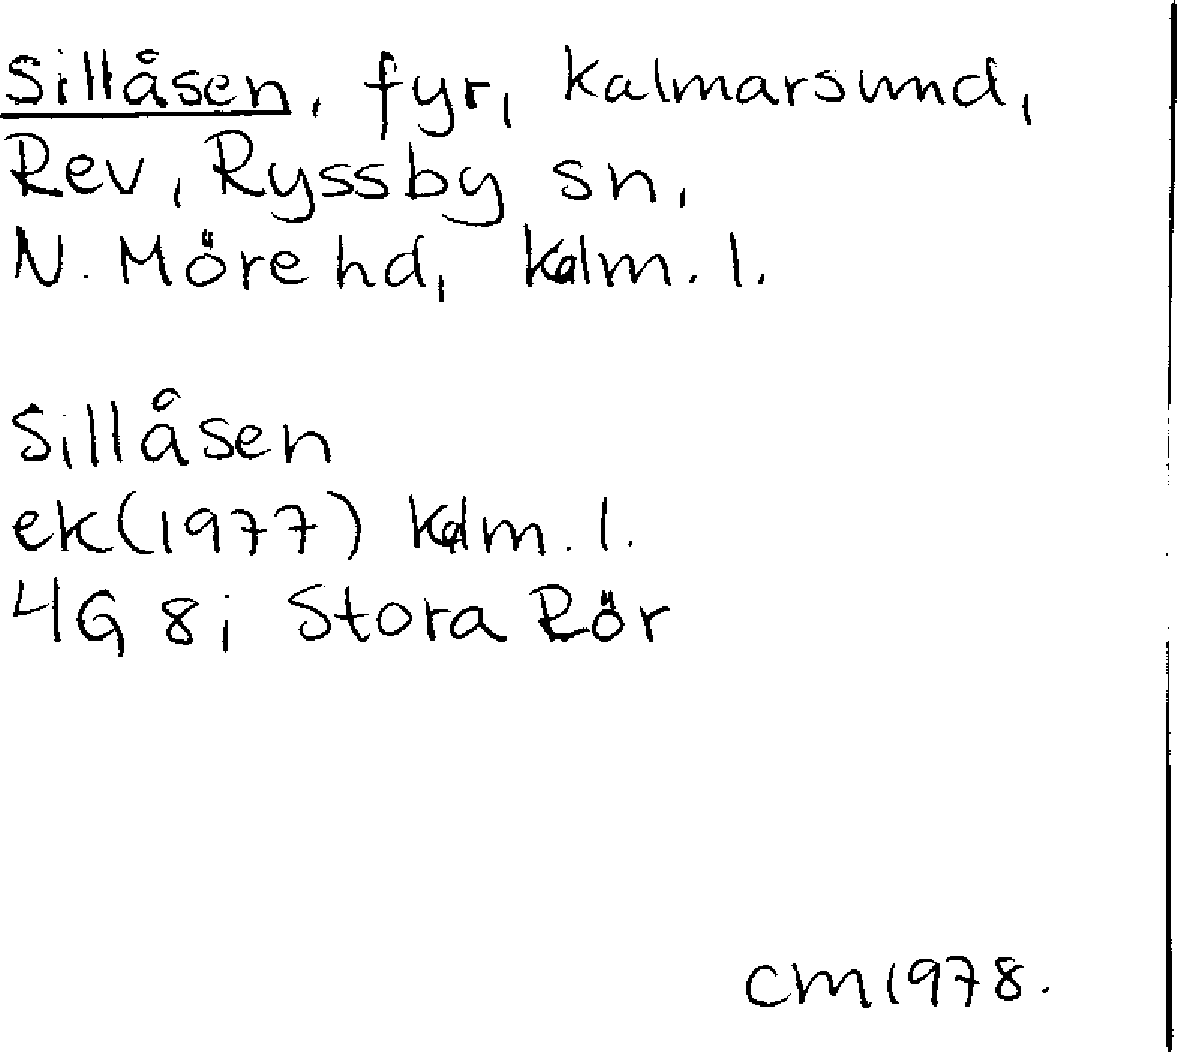 Sillåsen, fyr, Kalmarsund,
Rev, Ryssby sn,
N. Möre hd, Kalm. l.
Sillåsen
ek(1977) Kalm. l.
4G 8i Stora Rör
CM 1978.